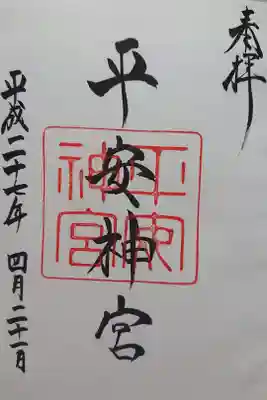 奉拝
平安神宮
平安神宮
平成二十七年 四月二十一日